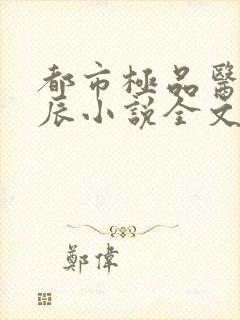 都市極品醫
辰小說全文
鄭偉